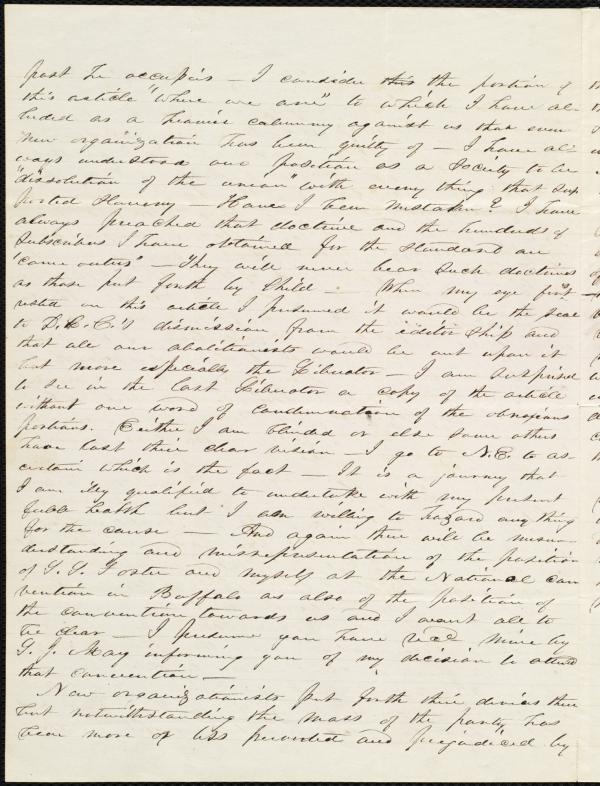 post he occupies — I consider this the portion of
this article "Where we are" to which I have al-
luded as a heavier calumny against us than even
New organization has been guilty of — I have al-
ways understood our position as a Society to be
"dissolution of the union" with every thing that sup
ported Slavery — Have I been mistaken? I have
always preached that doctrine and the hundreds of
Subscribers I have obtained for the Standard are
"come outers" — They will never bear such doctrines
as those put forth by Child — When my eye first
rested on this article I presumed it would be the seal
to D. L. C.'s dismission from the editor ship and
that all our abolitionists would be out upon it
but more especially the Liberator — I am surprised
to see in the last Liberator a copy of the article
without one word of condemnation of the obnoxious
portions. Either I am blinded or else some others
have lost their clear vision — I go to N.E. to as-
certain which is the fact — It is a journey that
I am illy qualified to undertake with my present
feeble health but I am willing to hazard any thing
for the cause — And again there will be misun-
derstanding and misrepresentation of the position
of S. S. Foster and myself at the National con
vention in Buffalo as also of the position of
the convention towards us and I want all to
be clear — I presume you have rec'd mine by
S. J. May informing you of my decision to attend
that convention —
New organizationists put forth their devices there
but notwithstanding the mass of the party has
been more or less perverted and prejudiced by